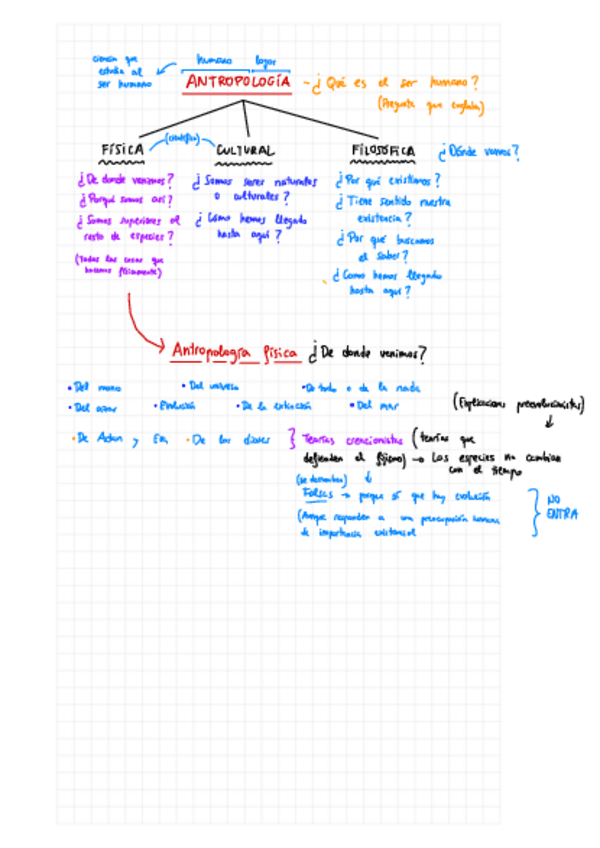 ciencia que
estudia al
ser humano
humano logos
ANTROPOLOGÍA - ¿Qué es el ser humano?
(Pregunta que engloba)
FÍSICA (científica) CULTURAL FILOSÓFICA ¿Dónde vamos?
¿De donde venimos?
¿Porqué somos así?
¿Somos superiores al
resto de especies?
(Todas las cosas que
hacemos físicamente)
¿Somos seres naturales
o culturales?
¿Cómo hemos llegado
hasta aquí?
¿Por qué existimos?
¿Tiene sentido nuestra
existencia?
¿Por qué buscamos
el saber?
¿Como hemos llegado
hasta aquí?
Antropología física ¿De donde venimos?
• Del mono • Del universo • De todo o de la nada
• Del azar • Evolución • De la extinción • Del mar (Explicaciones preevolucionistas)
• De Adan y Eva • De los dioses } Teorías creacionistas (teorías que
defienden el fijismo) → Las especies no cambian
con el tiempo
(se desmontan)
Falsas → porque sí que hay evolución
(Aunque responden a una preocupación humana
de importancia existencial
NO
ENTRA